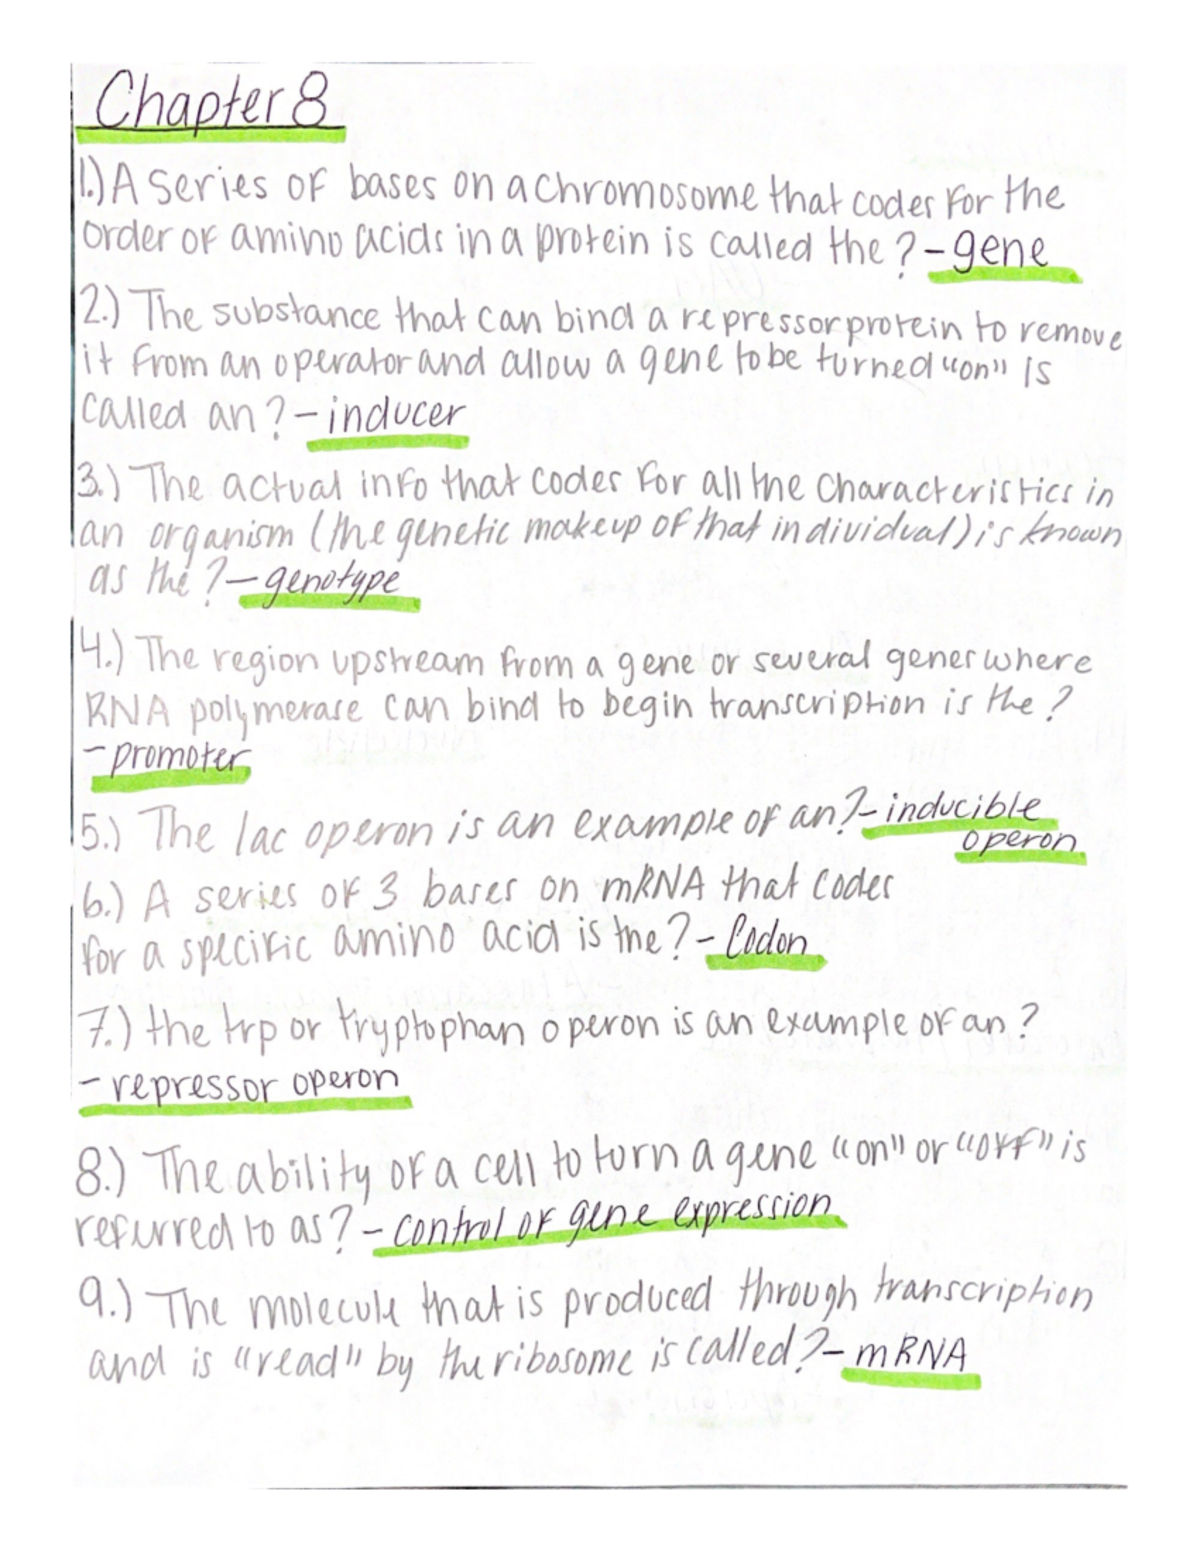 Chapter 8
1.) A series of bases on a chromosome that codes for the
order of amino acids in a protein is called the ? - gene
2.) The substance that can bind a repressor protein to remove
it from an operator and allow a gene to be turned "on" is
called an ? - inducer
3.) The actual info that codes for all the characteristics in
an organism (the genetic makeup of that individual) is known
as the ? - genotype
4.) The region upstream from a gene or several genes where
RNA polymerase can bind to begin transcription is the ?
- promoter
5.) The lac operon is an example of an? - inducible
operon
6.) A series of 3 bases on mRNA that codes
for a specific amino acid is the? - Codon
7.) the trp or tryptophan operon is an example of an ?
- repressor operon
8.) The ability of a cell to turn a gene "on" or "off" is
refurred to as? - control of gene expression
9.) The molecule that is produced through transcription
and is "read" by the ribosome is called? - mRNA